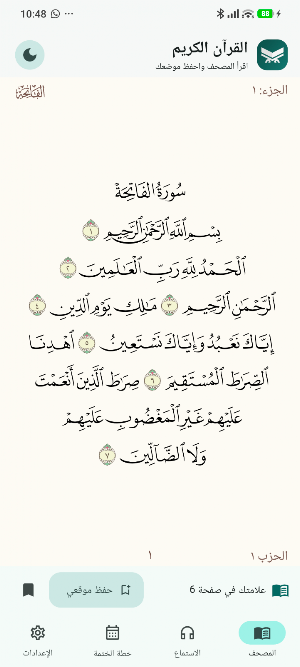 10:48
88
القرآن الكريم
اقرأ المصحف واحفظ موضعك
الجزء: ١
الفاتحة
سُورَةُ الْفَاتِحَةِ
بِسْمِ اللَّهِ الرَّحْمَٰنِ الرَّحِيمِ ١
الْحَمْدُ لِلَّهِ رَبِّ الْعَالَمِينَ ٢
الرَّحْمَٰنِ الرَّحِيمِ ٣ مَالِكِ يَوْمِ الدِّينِ ٤
إِيَّاكَ نَعْبُدُ وَإِيَّاكَ نَسْتَعِينُ ٥ اهْدِنَا
الصِّرَاطَ الْمُسْتَقِيمَ ٦ صِرَاطَ الَّذِينَ أَنْعَمْتَ
عَلَيْهِمْ غَيْرِ الْمَغْضُوبِ عَلَيْهِمْ
وَلَا الضَّالِّينَ ٧
الحزب ١
١
علامتك في صفحة 6
حفظ موقعي
المصحف
الاستماع
خطة الختمة
الإعدادات